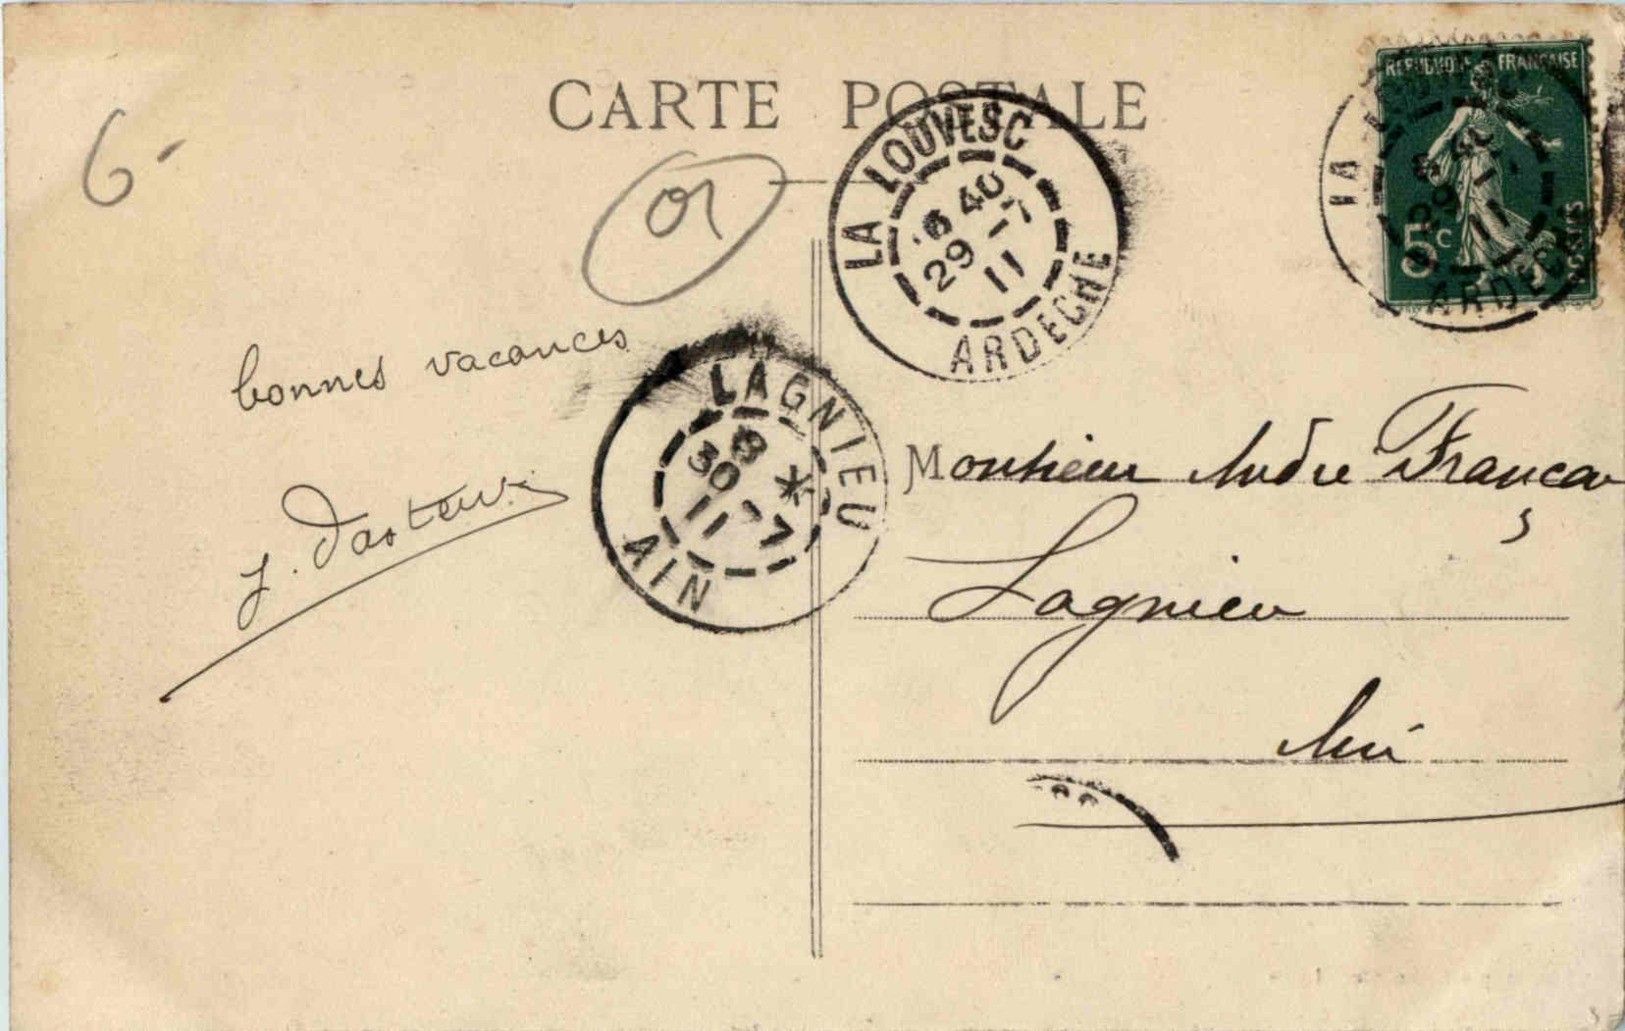 CARTE POSTALE
6-
01
LA LOUVESC
40
29 -7
11
ARDECHE
REPUBLIQUE FRANÇAISE
5c
POSTES
LA
29
11
ARDECHE
bonnes vacances
LAGNIEU
8 *
30 -7
11
AIN
Monsieur André
J.
Lagnieu
Ain